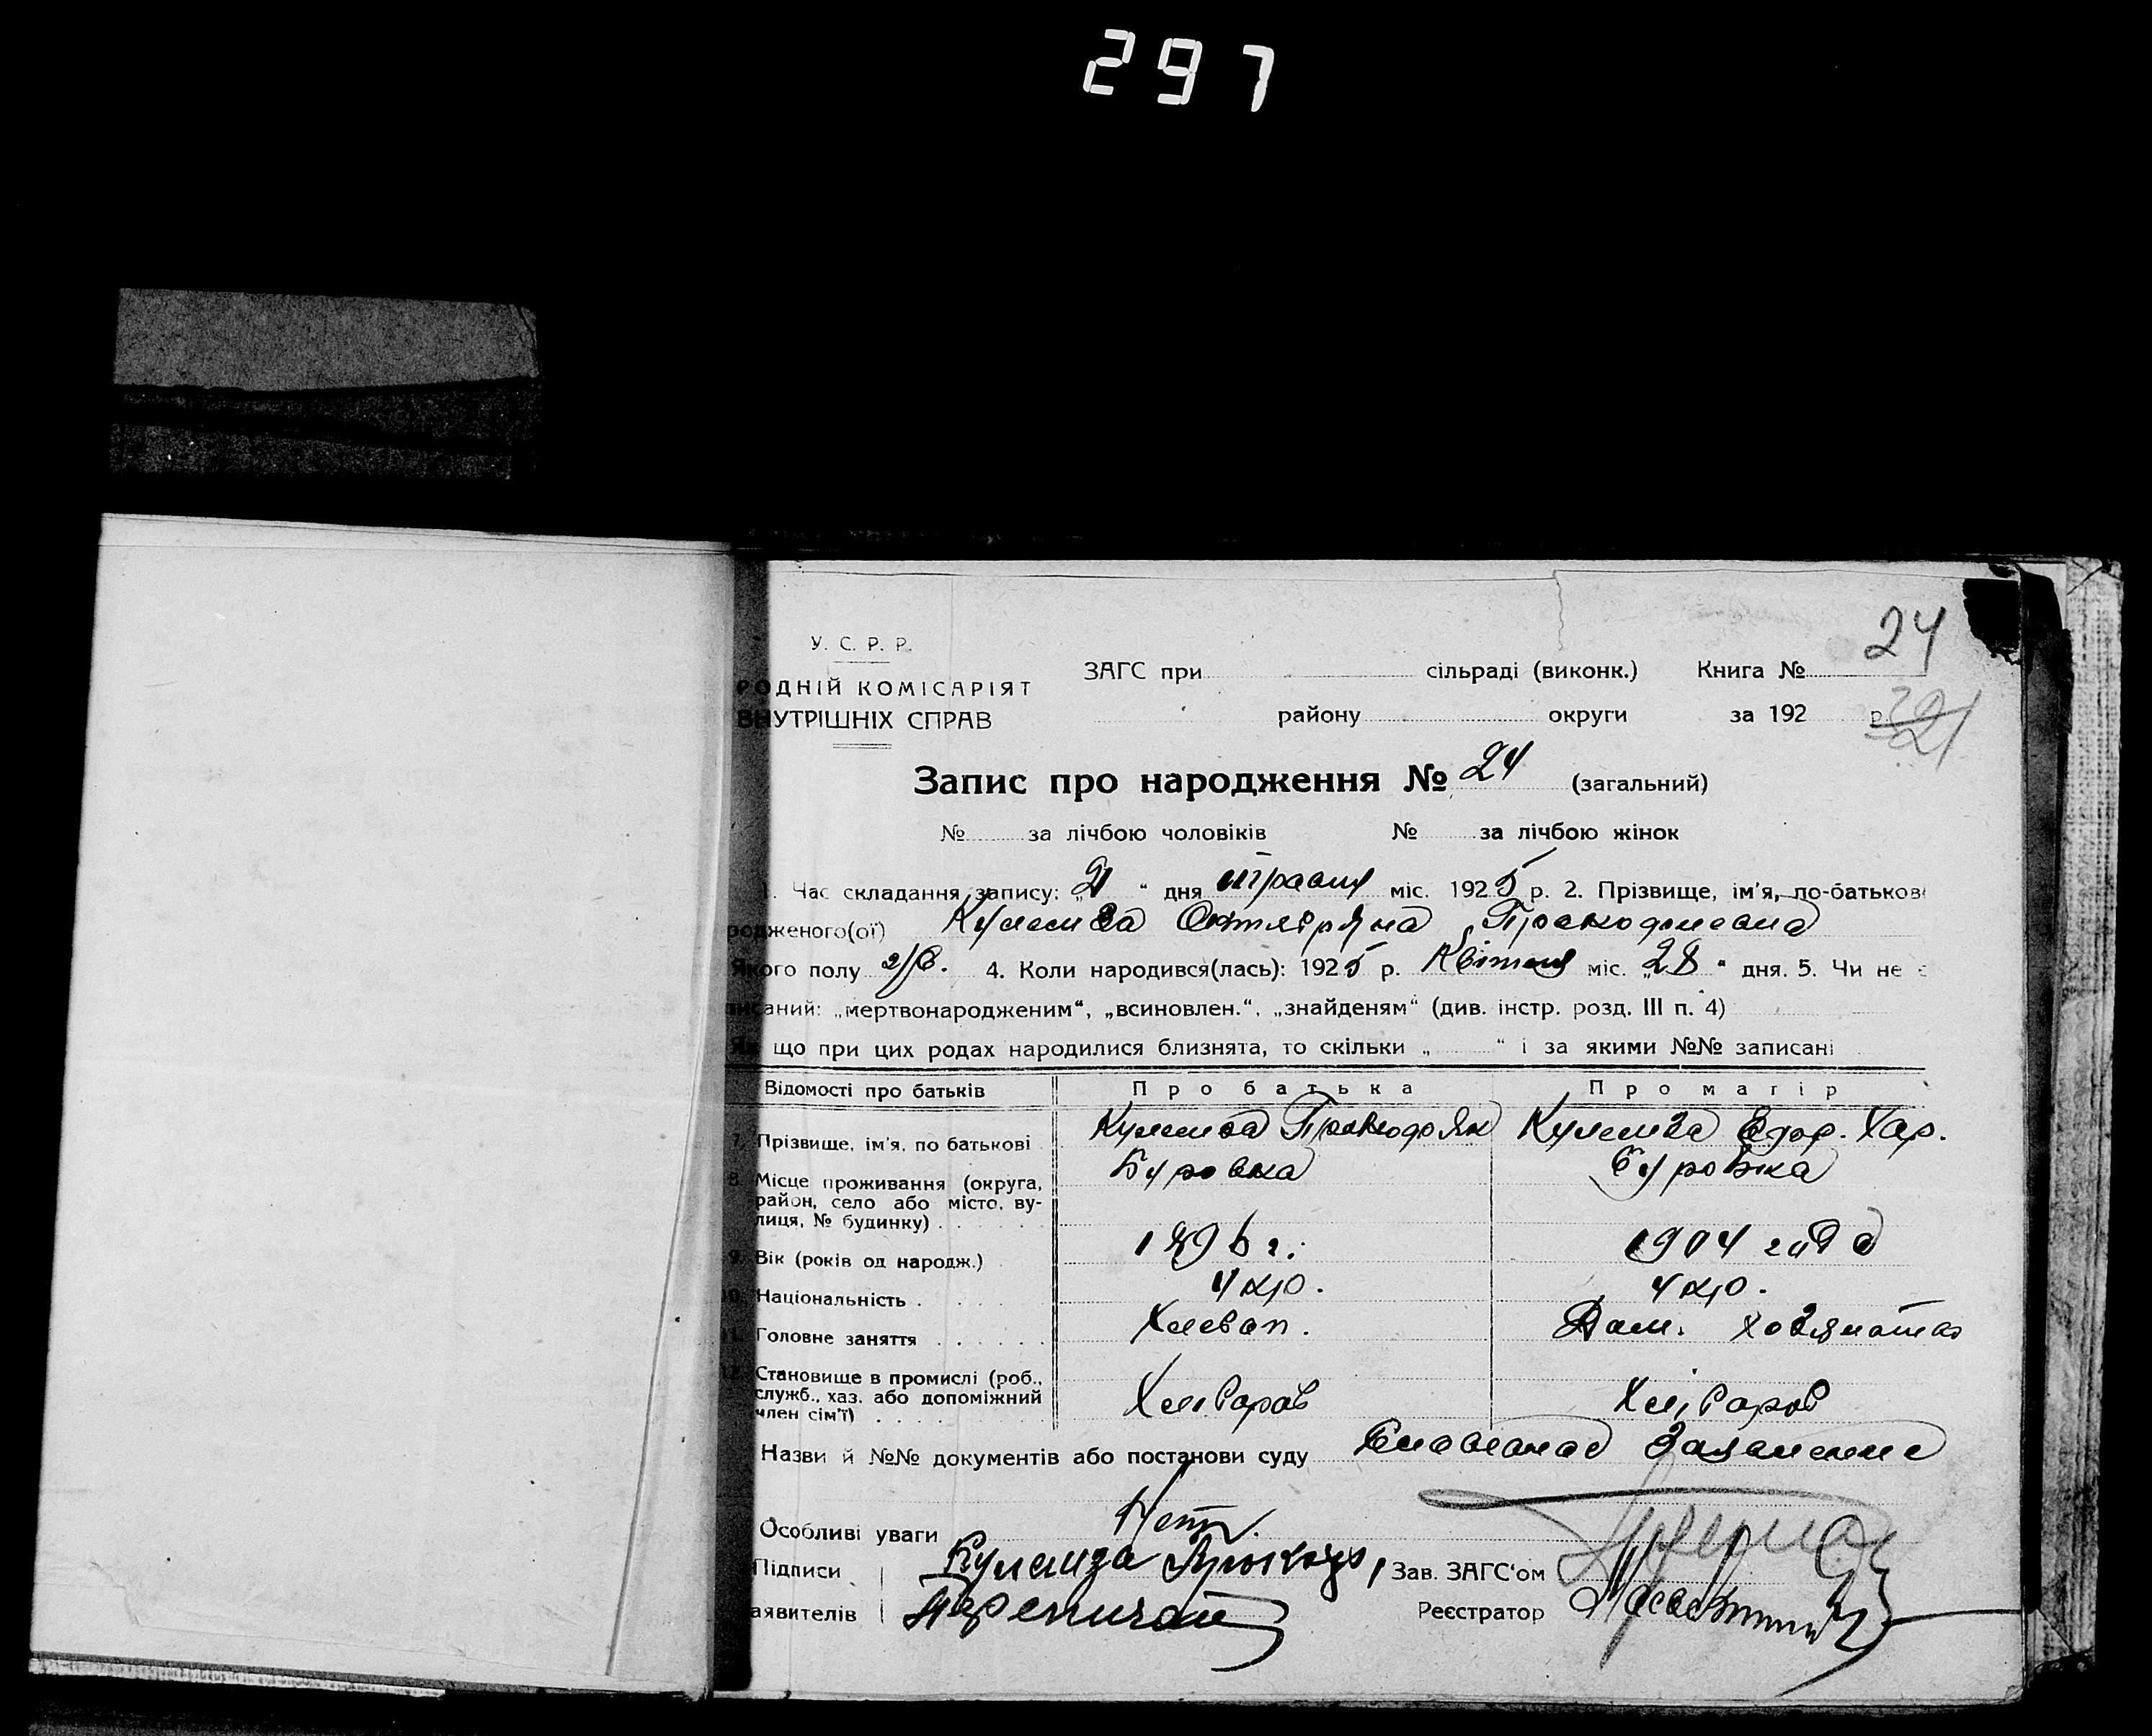 297
24
У. С. Р. Р.
ЗАГС при сільраді (виконк.) Книга №
РОДНІЙ КОМІСАРІЯТ
ВНУТРІШНІХ СПРАВ
району округи за 192 р.
21
Запис про народження № 24 (загальний)
№ за лічбою чоловіків № за лічбою жінок
1. Час складання запису: „21“ дня травня міс. 1925 р. 2. Прізвище, ім'я, по-батькові
родженого(ої) Кулемза Октябряна
Якого полу 4. Коли народився(лась): 1925 р. Квітня міс. „28“ дня. 5. Чи не є
писаний: „мертвонародженим“, „всиновлен.“, „знайденям“ (див. інстр. розд. III п. 4)
Як що при цих родах народилися близнята, то скільки „ “ і за якими №№ записані
Відомості про батьків Про батька Про матір
7. Прізвище, ім'я, по батькові Кулемза Кулемза Хар.
8. Місце проживання (округа, район, село або місто, вулиця, № будинку) Буровка Буровка
9. Вік (років од народж.) 1896 г. 1904 года
10. Національність Укр. Укр.
11. Головне заняття Хлебоп. Дом. хозяйка
12. Становище в промислі (роб., служб., хаз. або допоміжний член сім'ї)
Назви й №№ документів або постанови суду
Особливі уваги Нет.
Підписи Кулемза Зав. ЗАГС'ом
аявителів Реєстратор